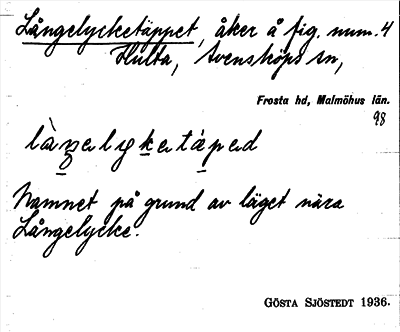 Långelycketäppet, åker å fig. num. 4
Hulta, Svensköps sn,
Frosta hd, Malmöhus län.
98
Namnet på grund av läget nära
Långelycke.
GÖSTA SJÖSTEDT 1936.